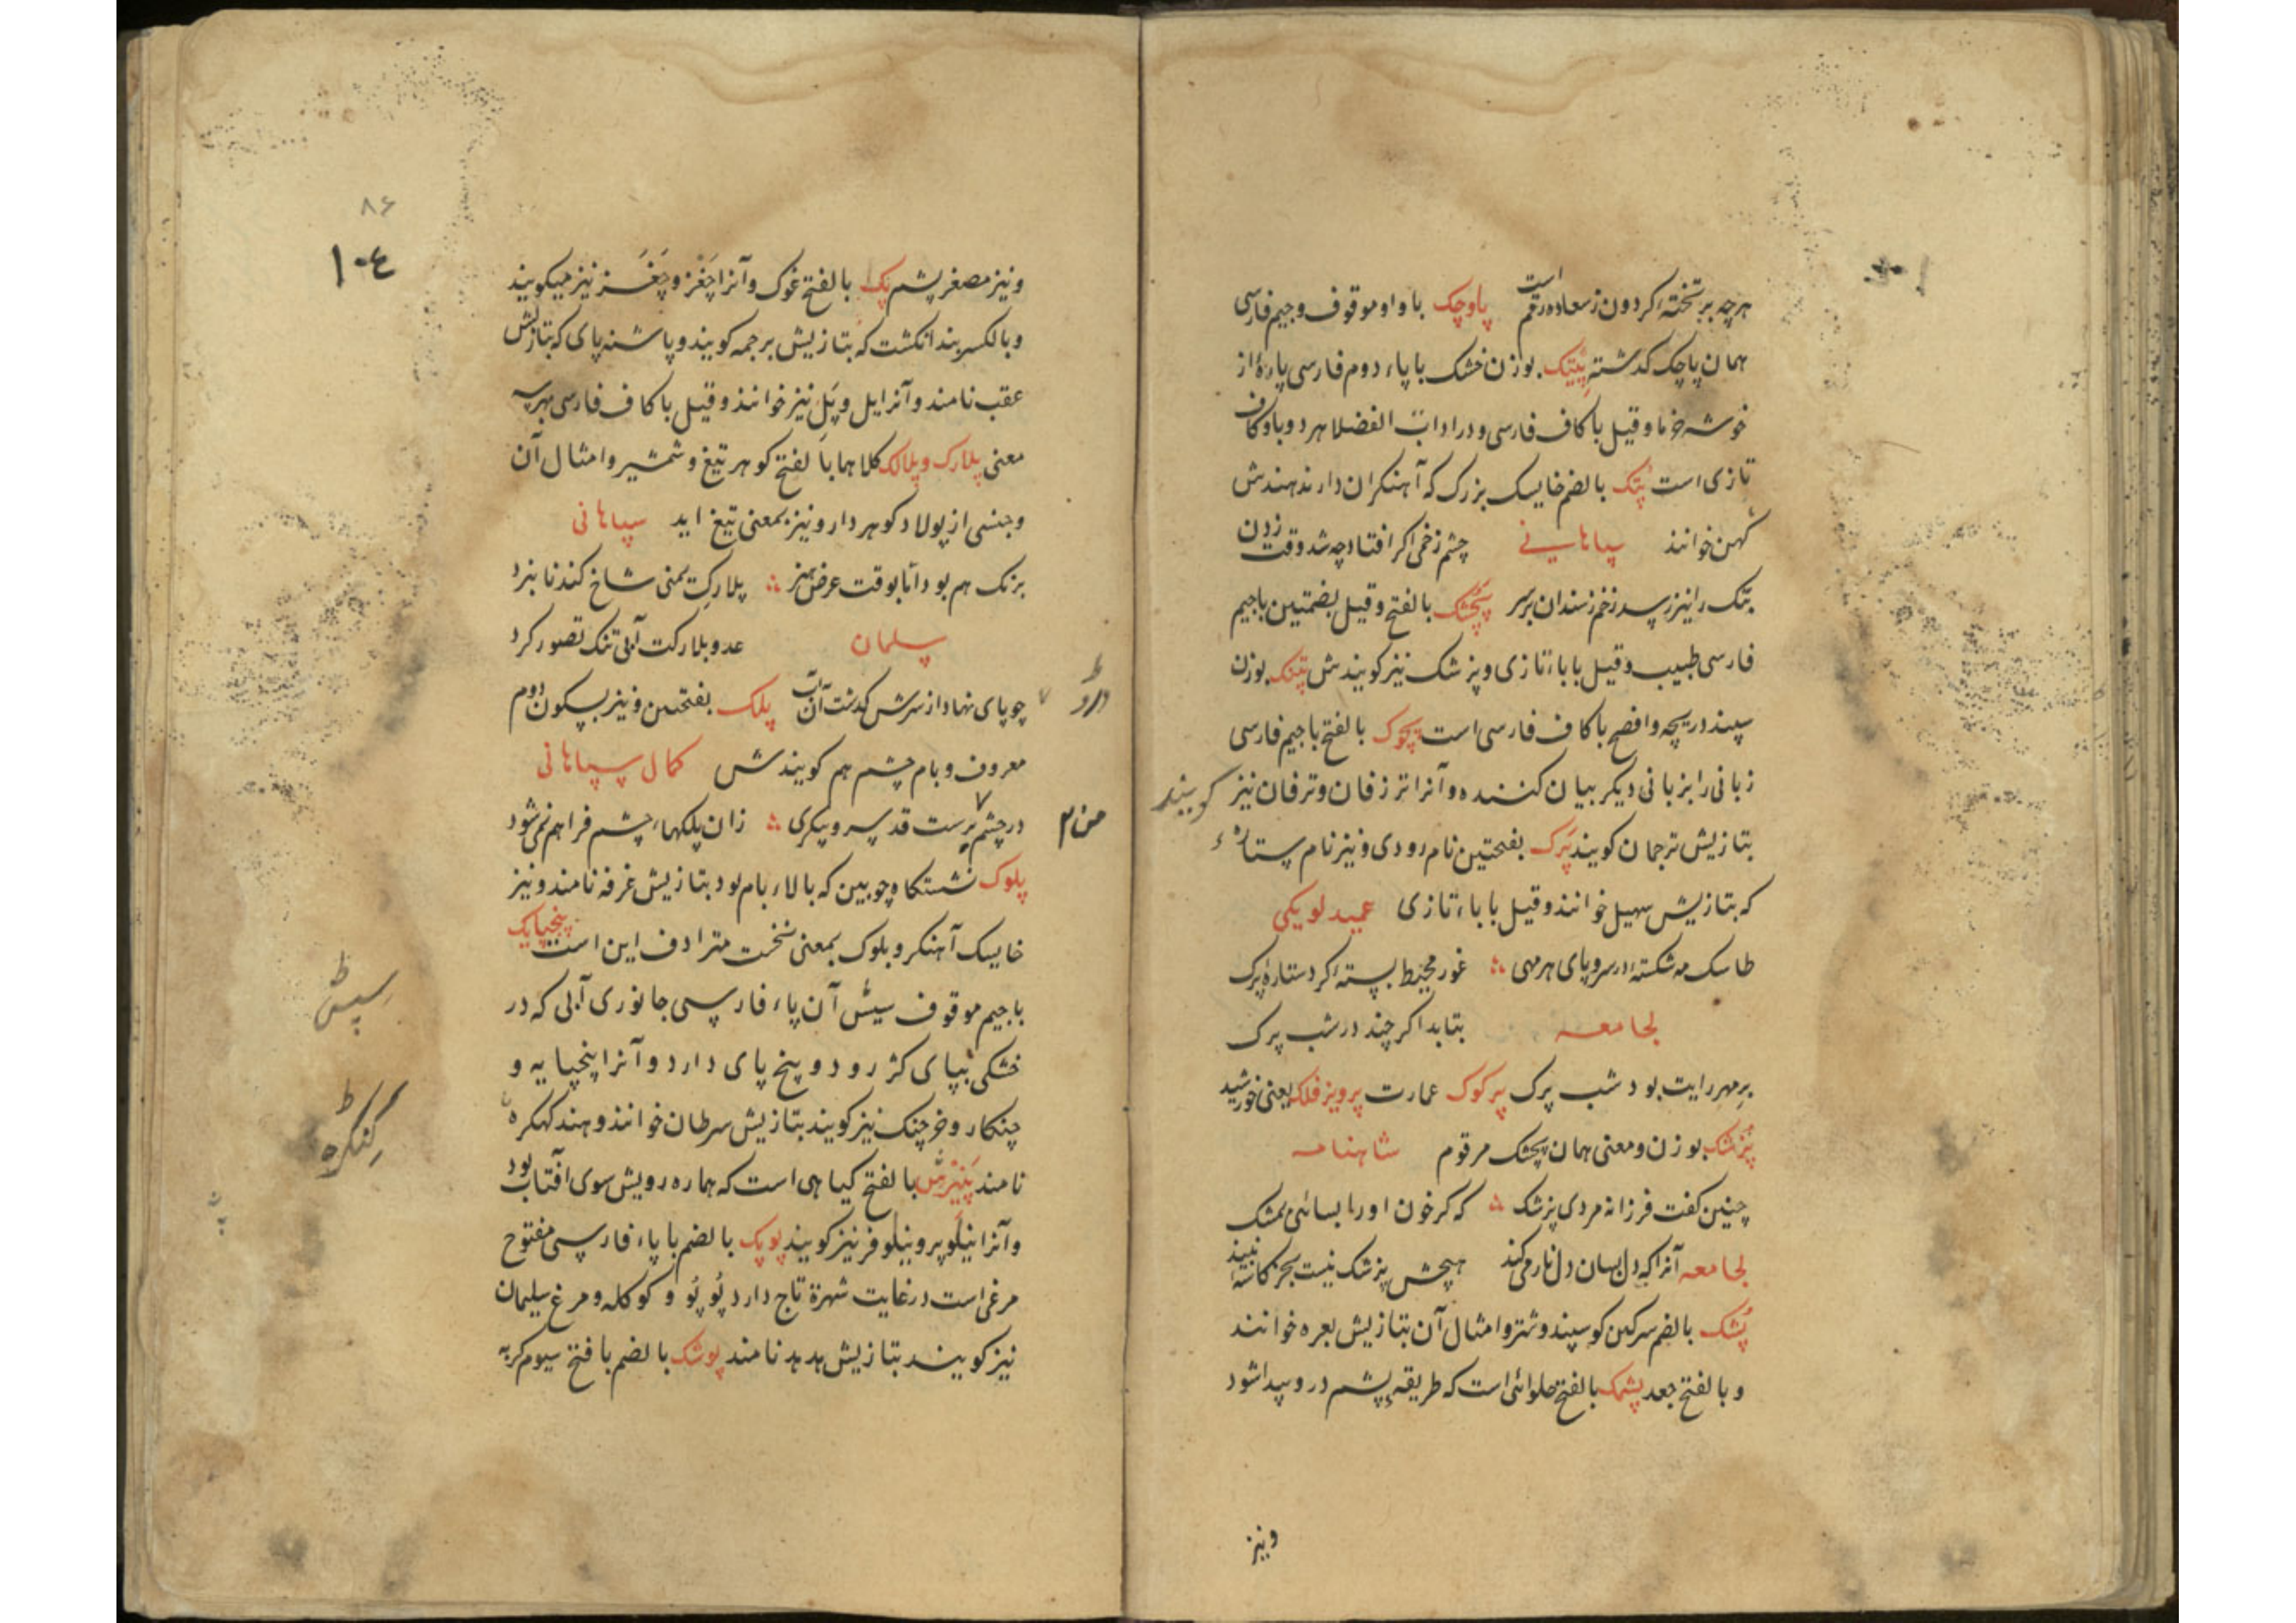 هرچه بر تخته کردون ز سعادت رقم است پاوچک با واو موقوف و جیم فارسی
همان پاچک کذشته پپتک بوزن خشک با پاء دوم فارسی پارهٔ از
خوشه خرما و قیل با کاف فارسی و در ادات الفضلا هر دو با و کاف
تازی است پتک بالضم خایسک بزرک که آهنکران دارند هندش
کهن خوانند سپاهانی چشم زخمی اکر افتاد چه شد وقت زدن
پتک را نیز رسد زخم ز سندان بر سر پچشک بالفتح و قیل بضمتین با جیم
فارسی طبیب و قیل با باء تازی و پزشک نیز کویندش پتنک بوزن
سپند دریچه و افصح با کاف فارسی است پچوک بالفتح با جیم فارسی
زبانی را بزبانی دیکر بیان کننده و آنرا ترزفان و ترفان نیز کویند
بتازیش ترجمان کویند پرک بفتحتین نام رودی و نیز نام ستارهٔ
که بتازیش سهیل خوانند و قیل با باء تازی عمید لویکی
طاسک مه شکستهٔ در سر و پای هر مهی غور محیط بستهٔ کرد ستارهٔ پرک
لجامعه بتابد اکر چند در شب پرک
بر مهر رایت بود شب پرک پرکوک عمارت پرویز فلک یعنی خورشید
پزشک بوزن و معنی همان پچشک مرقوم شاهنامه
چنین کفت فرزانه مردی پزشک که کر خون او را بسائی بمشک
لجامعه آنرا که دل بسان دل نار می کند هیچش پزشک نیست بجز کاسهٔ نبیذ
پشک بالضم سرکین کوسپند و شتر و امثال آن بتازیش بعره خوانند
و بالفتح جعد پشمک بالفتح حلوائی است که طریقهٔ پشم در و پیدا شود
و نیز
۸۶
۱۰۴
و نیز مصغر پشم پک بالفتح غوک و آنرا چغز و چغز نیز میکویند
و بالکسر بند انکشت که بتازیش برجمه کویند و پاشنه پای که بتازیش
عقب نامند و آنرا پل و پل نیز خوانند و قیل با کاف فارسی بهر سه
معنی پلارک و پلالک کلاهما بالفتح کوهر تیغ و شمشیر و امثال آن
و جنسی از پولاد کوهر دار و نیز بمعنی تیغ اید سپاهانی
برنک هم بود اما بوقت عرض هنر پلارک یمنی شاخ کندنا بنرد
سلمان عدو بلارکت آبی تنک تصور کرد
چو پای نهاد از سرش کذشت آن آب پلک بفتحتین و نیز بسکون دوم
درو
معروف و بام چشم هم کویندش کمال سپاهانی
در چشم پرست قد سرو پیکری زان پلکهاء چشم فراهم نمی شود
من ۲
پلوک نشستکاه چوبین که بالاء بام بود بتازیش غرفه نامند و نیز
خایسک آهنکر و بلوک بمعنی نخست مترادف این است پنجپایک
با جیم موقوف سیش آن پاء فارسی جانوری آبی که در
خشکی بپای کژ رود و پنج پای دارد و آنرا پنجپایه و
چنکار و خرچنک نیز کویند بتازیش سرطان خوانند و هند کهنکره
نامند پنیرش بالفتح کیاهی است که هماره رویش سوی افتاب بود
و آنرا نیلوپر و نیلوفر نیز کویند پوپک بالضم با پاء فارسی مفتوح
مرغی است در غایت شهرة تاج دارد پوپو و کوکله و مرغ سلیمان
نیز کویند بتازیش هدهد نامند پوشک بالضم با فتح سیوم کربه